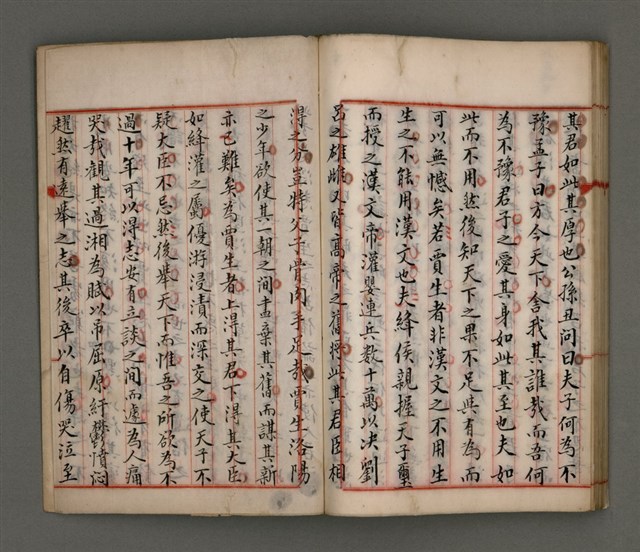 其君如此其厚也公孫丑問曰夫子何為不
豫孟子曰方今天下舍我其誰哉而吾何
為不豫君子之愛其身如此其至也夫如
此而不用然後知天下之果不足與有為而
可以無憾矣若賈生者非漢文之不用生
生之不能用漢文也夫絳侯親握天子璽
而授之漢文帝灌嬰連兵數十萬以决劉
呂之雄雌又皆高帝之舊將此其君臣相
得之分豈特父子骨肉手足哉賈生洛陽
之少年欲使其一朝之間盡棄其舊而謀其新
亦已難矣為賈生者上得其君下得其大臣
如絳灌之屬優游浸漬而深交之使天子不
疑大臣不忌然後舉天下而惟吾之所欲為不
過十年可以得志安有立談之間而遽為人痛
哭哉觀其過湘為賦以弔屈原紆鬱憤悶
趯然有遠舉之志其後卒以自傷哭泣至